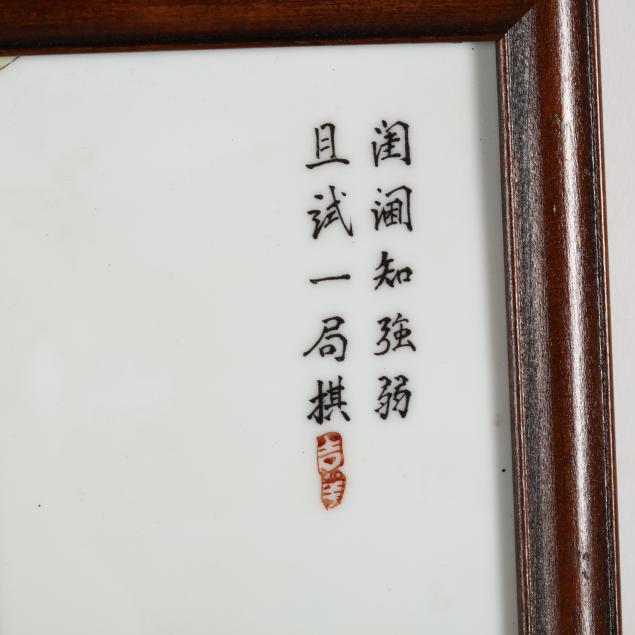 闺阃知強弱
且试一局棋
吉